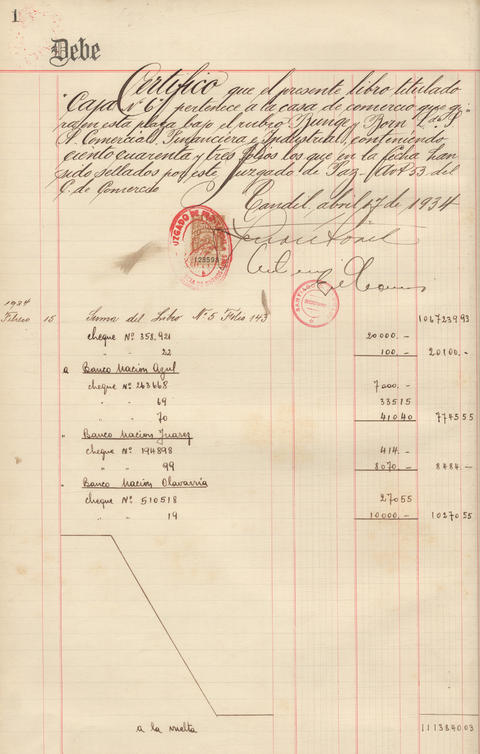 1
Debe
Certifico que el presente libro titulado
"Caja Nº 6" pertenece a la casa de comercio que gi-
ra en esta plaza bajo el rubro Bunge y Born
A. Comercial, Financiera e Industrial, conteniendo
ciento cuarenta y tres folios los que en la fecha han
sido sellados por este Juzgado de Paz. (Art 53 del
C. de Comercio
Tandil, abril 17 de 1934
JUZGADO DE PAZ
1934
Febrero 15 Suma del Libro Nº 5 Folio 143 1067239.93
cheque Nº 358.921 20000.-
" 22 100.- 20100.-
a Banco Nación Azul
cheque Nº 263668 7000.-
" " 69 335 15
" " 70 410.40 7745 55
" Banco Nación Juarez
cheque Nº 194898 414.-
" " 99 8070.- 8484.-
" Banco Nación Olavarria
cheque Nº 510518 270 55
" " 19 10000.- 10270 55
a la vuelta 1113840.03